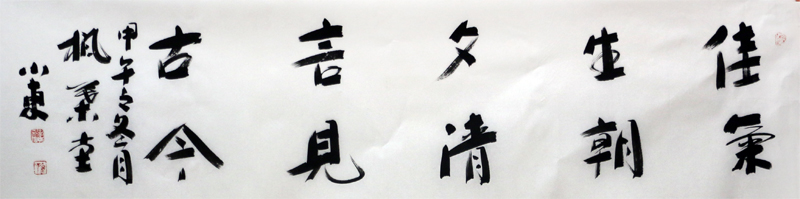 佳氣
生朝
夕清
言見
古今
甲午之冬月
楓葉堂
小東